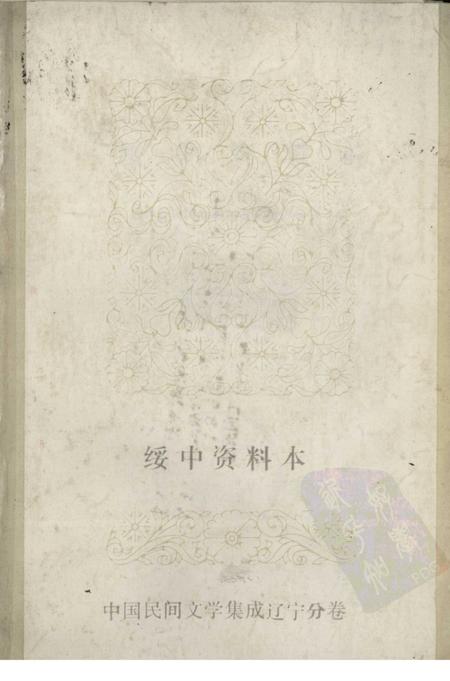 绥中资料本
中国民间文学集成辽宁分卷